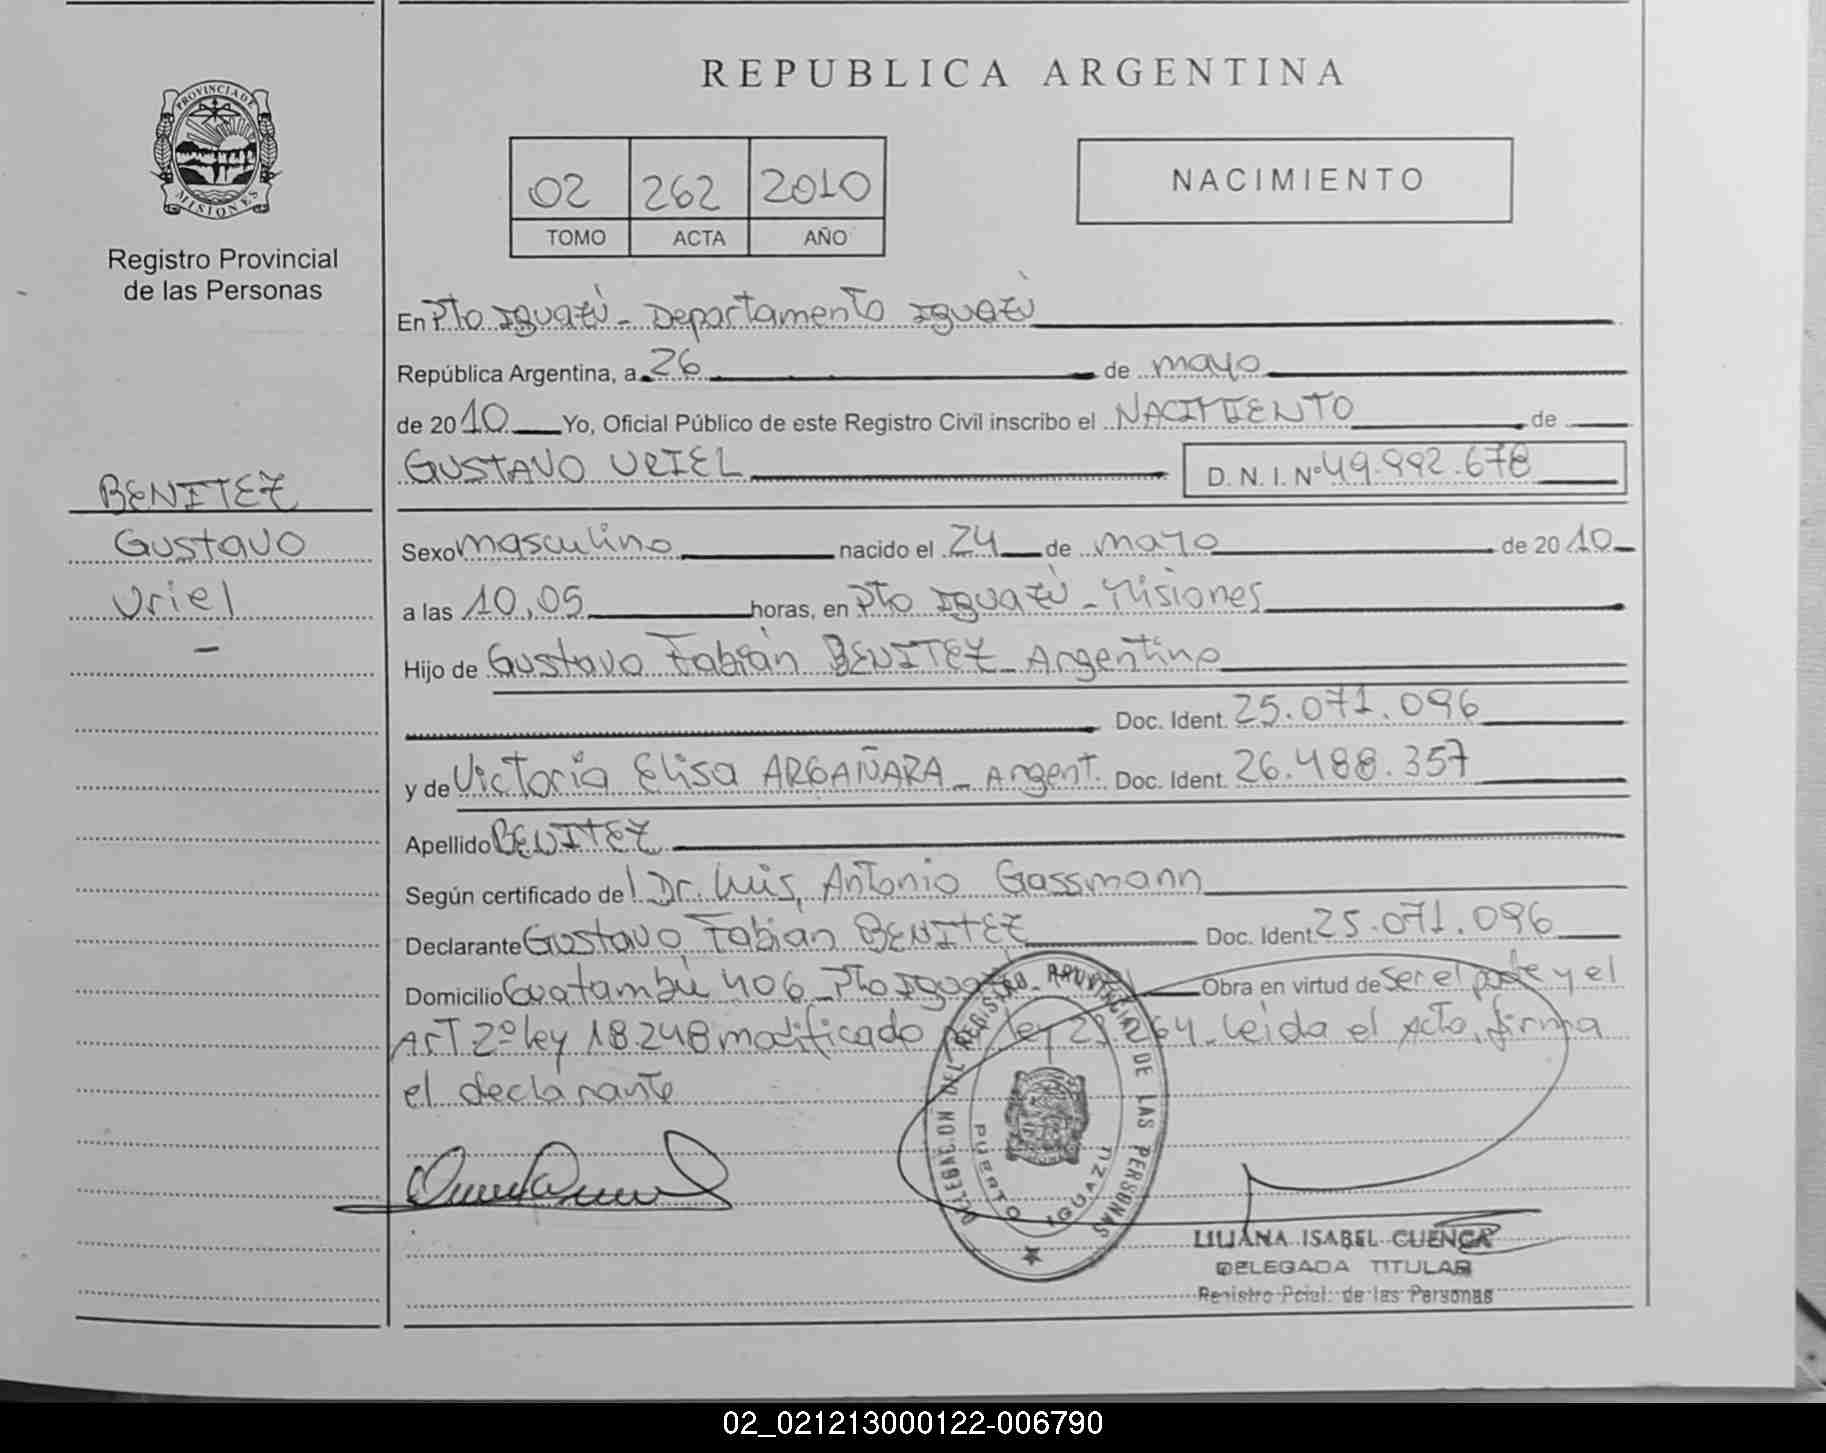 REPUBLICA ARGENTINA
PROVINCIA DE
MISIONES
Registro Provincial
de las Personas
02 262 2010
TOMO ACTA AÑO
NACIMIENTO
En Pto Iguazú - Departamento Iguazú
República Argentina, a 26 de mayo
de 2010 Yo, Oficial Público de este Registro Civil inscribo el NACIMIENTO de
GUSTAVO URIEL D. N. I. Nº 49.992.678
BENITEZ
Gustavo
Uriel
-
Sexo masculino nacido el 24 de mayo de 2010
a las 10,05 horas, en Pto Iguazú - Misiones
Hijo de Gustavo Fabián BENITEZ - Argentino
Doc. Ident. 25.071.096
y de Victoria Elisa ARGAÑARA - Argent. Doc. Ident. 26.488.357
Apellido BENITEZ
Según certificado del Dr. Luis, Antonio Gassmann
Declarante Gustavo Fabian BENITEZ Doc. Ident. 25.071.096
Domicilio Guatambú 406 - Pto Iguazú Obra en virtud de ser el padre y el
Art 2º ley 18.248 modificado ley leida el Acto, firma
el declarante
DELEGACION DEL REGISTRO PROVINCIAL DE LAS PERSONAS
PUERTO IGUAZU
LILIANA ISABEL CUENCA
DELEGADA TITULAR
Registro Pcial. de las Personas
02_021213000122-006790